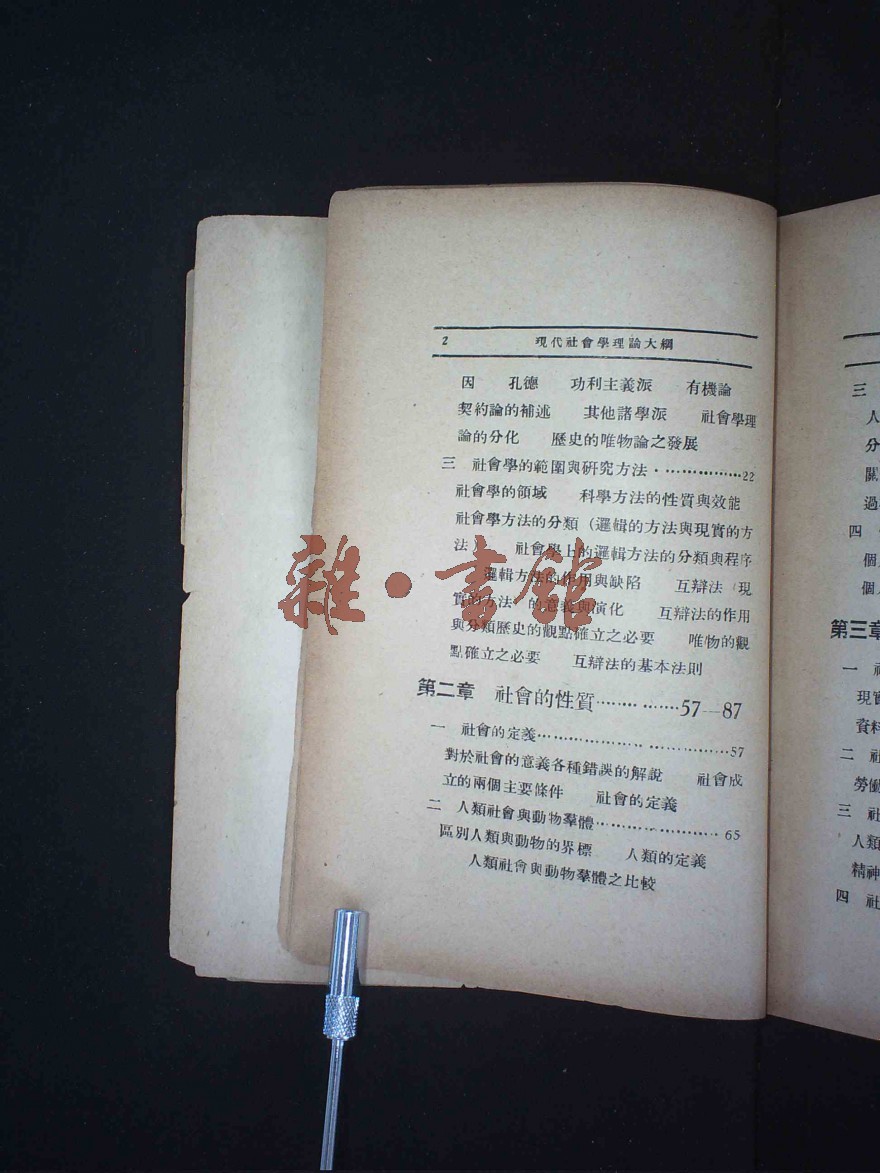 2 現代社會學理論大綱
因 孔德 功利主義派 有機論
契約論的補述 其他諸學派 社會學理
論的分化 歷史的唯物論之發展
三 社會學的範圍與研究方法·················22
社會學的領域 科學方法的性質與效能
社會學方法的分類（邏輯的方法與現實的方
法） 社會學上的邏輯方法的分類與程序
邏輯方法的作用與缺陷 互辯法（現
實的方法）的意義與演化 互辯法的作用
與分類歷史的觀點確立之必要 唯物的觀
點確立之必要 互辯法的基本法則
第二章 社會的性質···············57—87
一 社會的定義·····························57
對於社會的意義各種錯誤的解說 社會成
立的兩個主要條件 社會的定義
二 人類社會與動物羣體···················65
區別人類與動物的界標 人類的定義
人類社會與動物羣體之比較
雜·書館
三
人
分
關
過
四
個
個
第三章
一
現實
資料
二 社
勞働
三 社
人類
精神
四 社